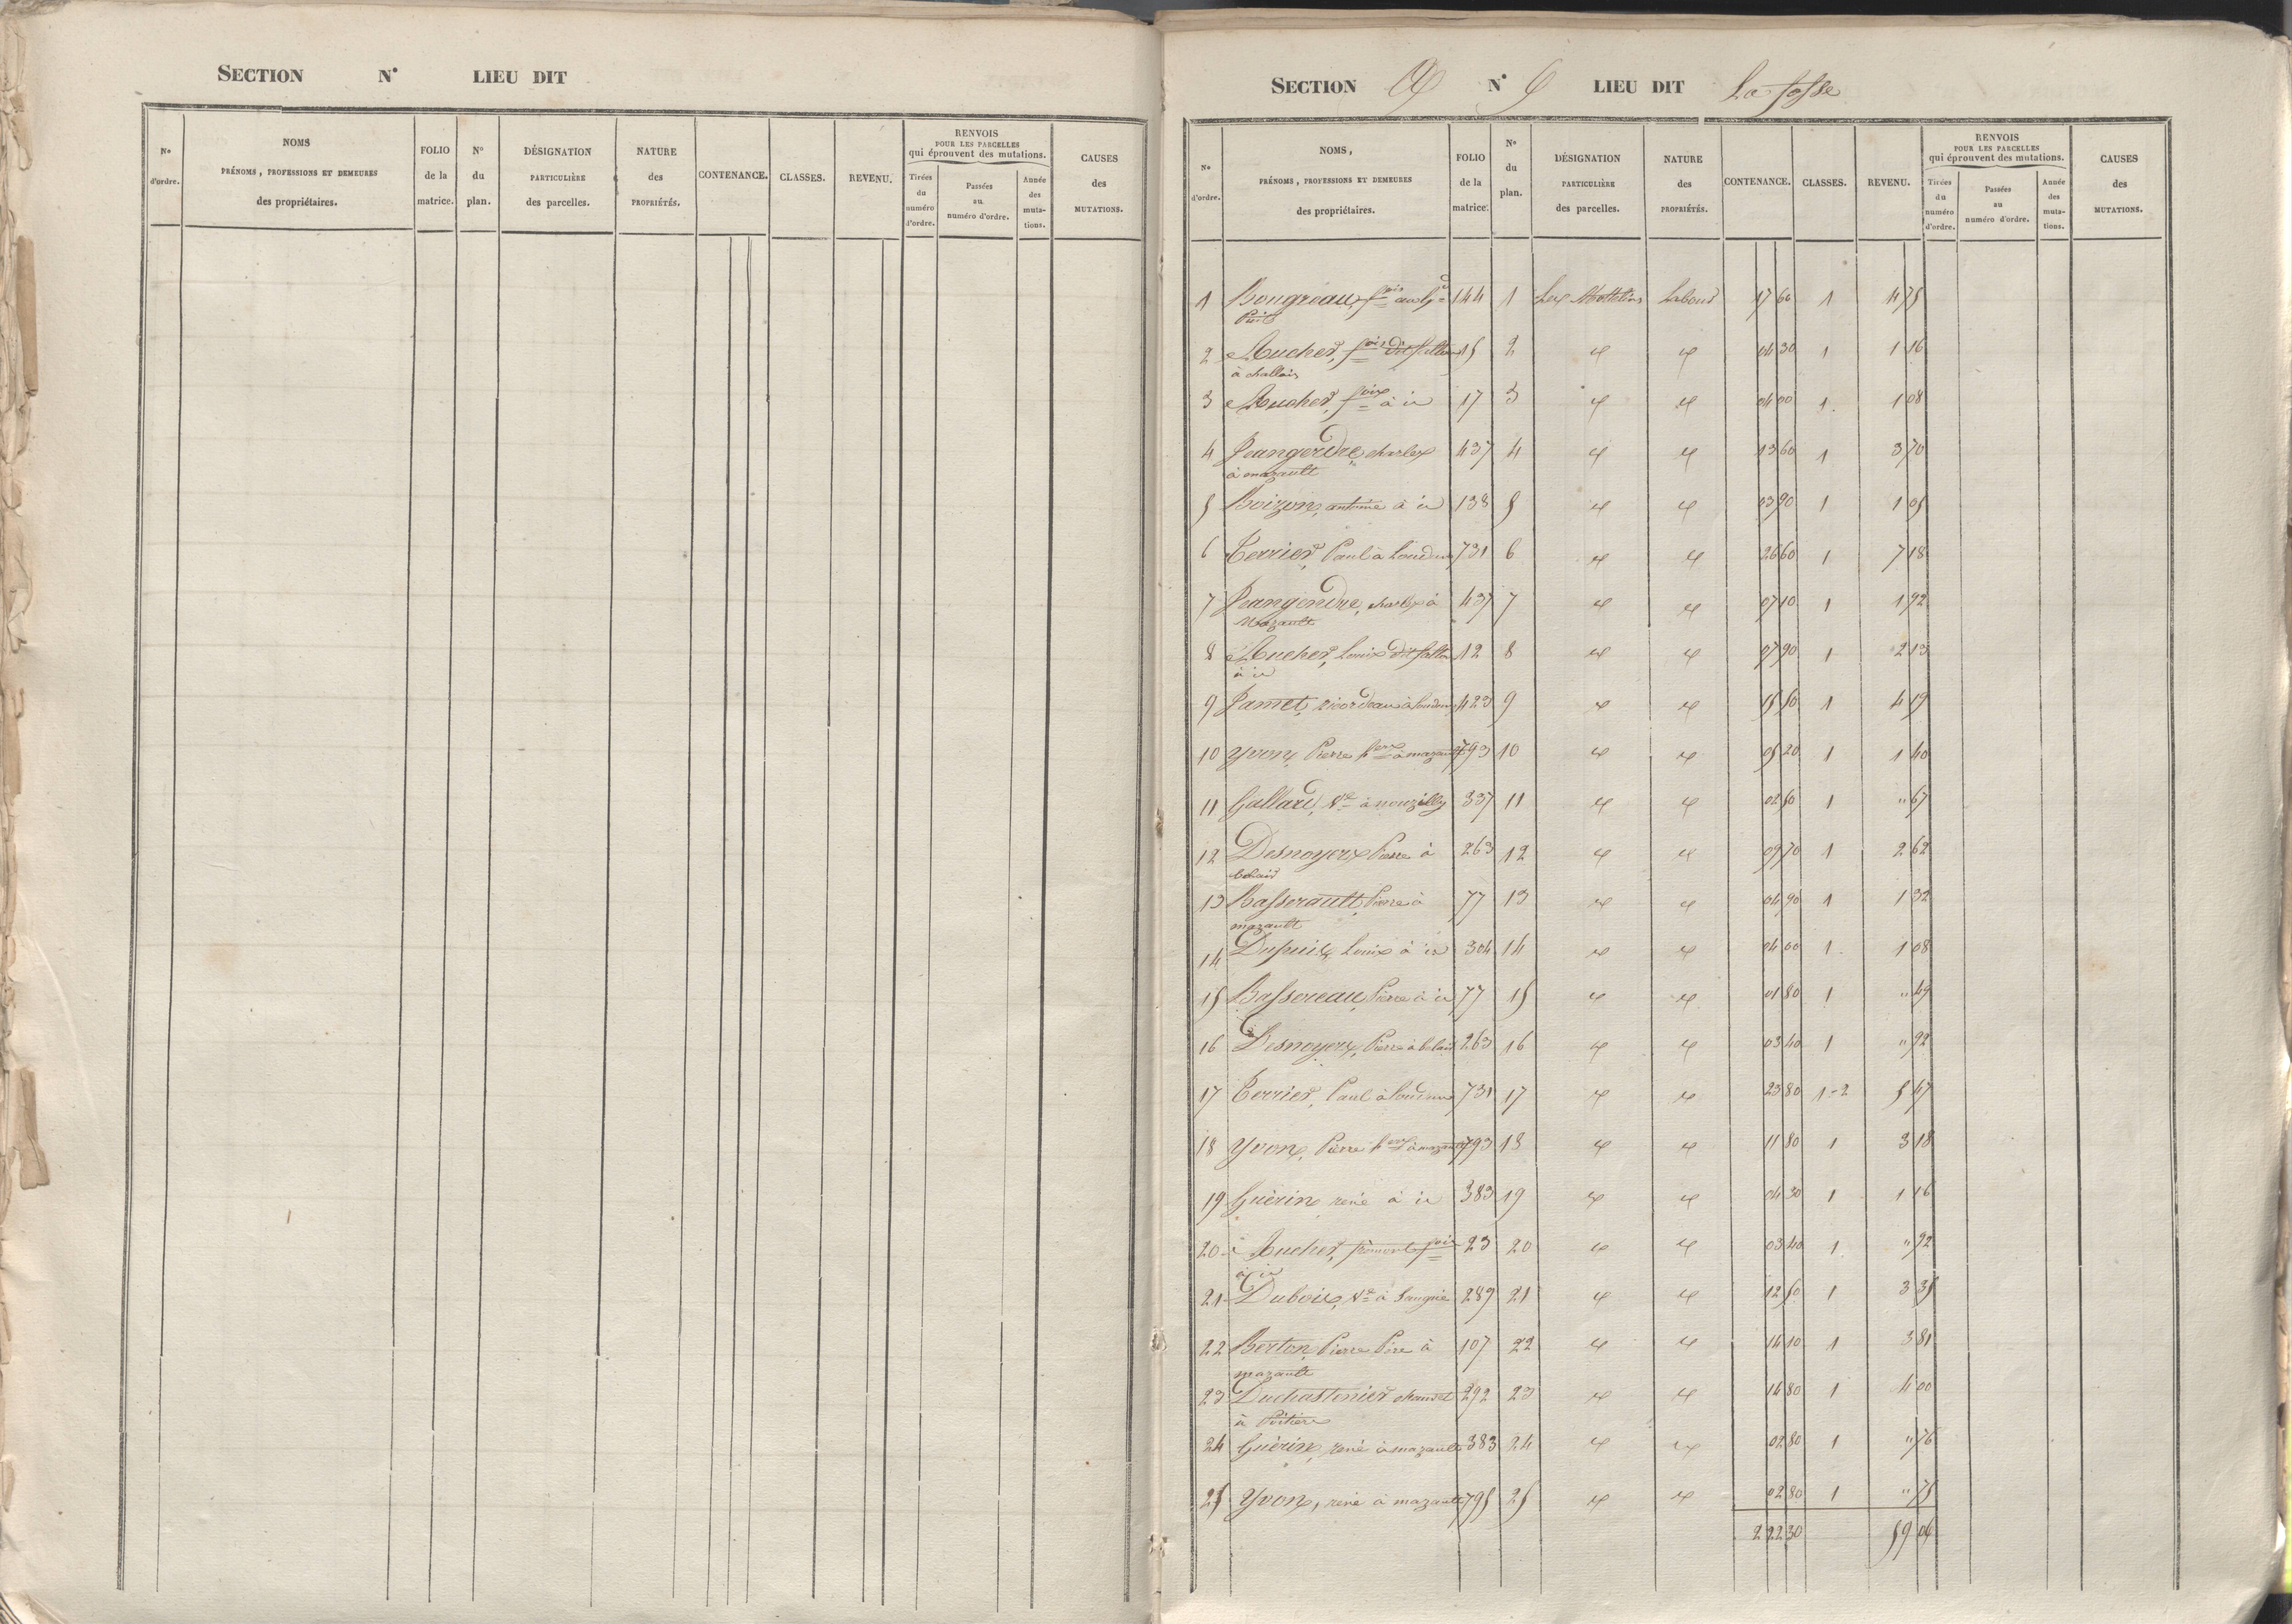 SECTION N° LIEU DIT
N° d'ordre. NOMS PRÉNOMS, PROFESSIONS ET DEMEURES des propriétaires. FOLIO de la matrice. N° du plan. DÉSIGNATION PARTICULIÈRE des parcelles. NATURE des PROPRIÉTÉS. CONTENANCE. CLASSES. REVENU. RENVOIS POUR LES PARCELLES qui éprouvent des mutations. Tirées du numéro d'ordre. Passées au numéro d'ordre. Année des mutations. CAUSES des MUTATIONS.
SECTION N° LIEU DIT La fosse
N° d'ordre. NOMS, PRÉNOMS, PROFESSIONS ET DEMEURES des propriétaires. FOLIO de la matrice. N° du plan. DÉSIGNATION PARTICULIÈRE des parcelles. NATURE des PROPRIÉTÉS. CONTENANCE. CLASSES. REVENU. RENVOIS POUR LES PARCELLES qui éprouvent des mutations. Tirées du numéro d'ordre. Passées au numéro d'ordre. Année des mutations. CAUSES des MUTATIONS.
1 Bougreau, fois 144 1 Les Labour 17 60 1 4 75
2 Aucher, fois dit 15 2 " " 04 30 1 1 16
à challais
3 Aucher, à id 17 3 " " 04 00 1 1 08
4 Jeangendre, charles 437 4 " " 13 60 1 3 70
à mazault
5 Boizon, antoine à id 138 5 " " 03 90 1 1 05
6 Terrier, Paul à Loudun 731 6 " " 26 60 1 7 18
7 Jeangendre, charles à 437 7 " " 07 10 1 1 92
Mazault
8 Aucher, Louis dit 12 8 " " 07 90 1 2 13
à id
9 Jamet, ricordeau à loudun 423 9 " " 15 50 1 4 19
10 Yvon, Pierre à mazault 793 10 " " 05 20 1 1 40
11 Gallard, Ve à nouzilly 337 11 " " 02 50 1 " 67
12 Desnoyers Pierre à 263 12 " " 09 70 1 2 62
13 Basserault, Pierre à 77 13 " " 04 90 1 1 32
mazault
14 Dupuis, Louis à id 304 14 " " 04 00 1 1 08
15 Bassereau, Pierre à id 77 15 " " 01 80 1 " 49
16 Desnoyers, Pierre à 263 16 " " 03 40 1 " 92
17 Terrier, Paul à Loudun 731 17 " " 23 80 1-2 5 47
18 Yvon, Pierre à mazault 793 18 " " 11 80 1 3 18
19 Guérin, rené à id 383 19 " " 04 30 1 1 16
20 Aucher, fois 23 20 " " 03 40 1 " 92
à id
21 Dubois, Ve à 289 21 " " 12 50 1 3 35
22 Berton, Pierre Père à 107 22 " " 14 10 1 3 81
mazault
23 Duchastenier 292 23 " " 14 80 1 4 00
à Poitiers
24 Guérin, rené à mazault 383 24 " " 02 80 1 " 76
25 Yvon, réné à mazault 795 25 " " 02 80 1 " 75
2 22 30 59 06